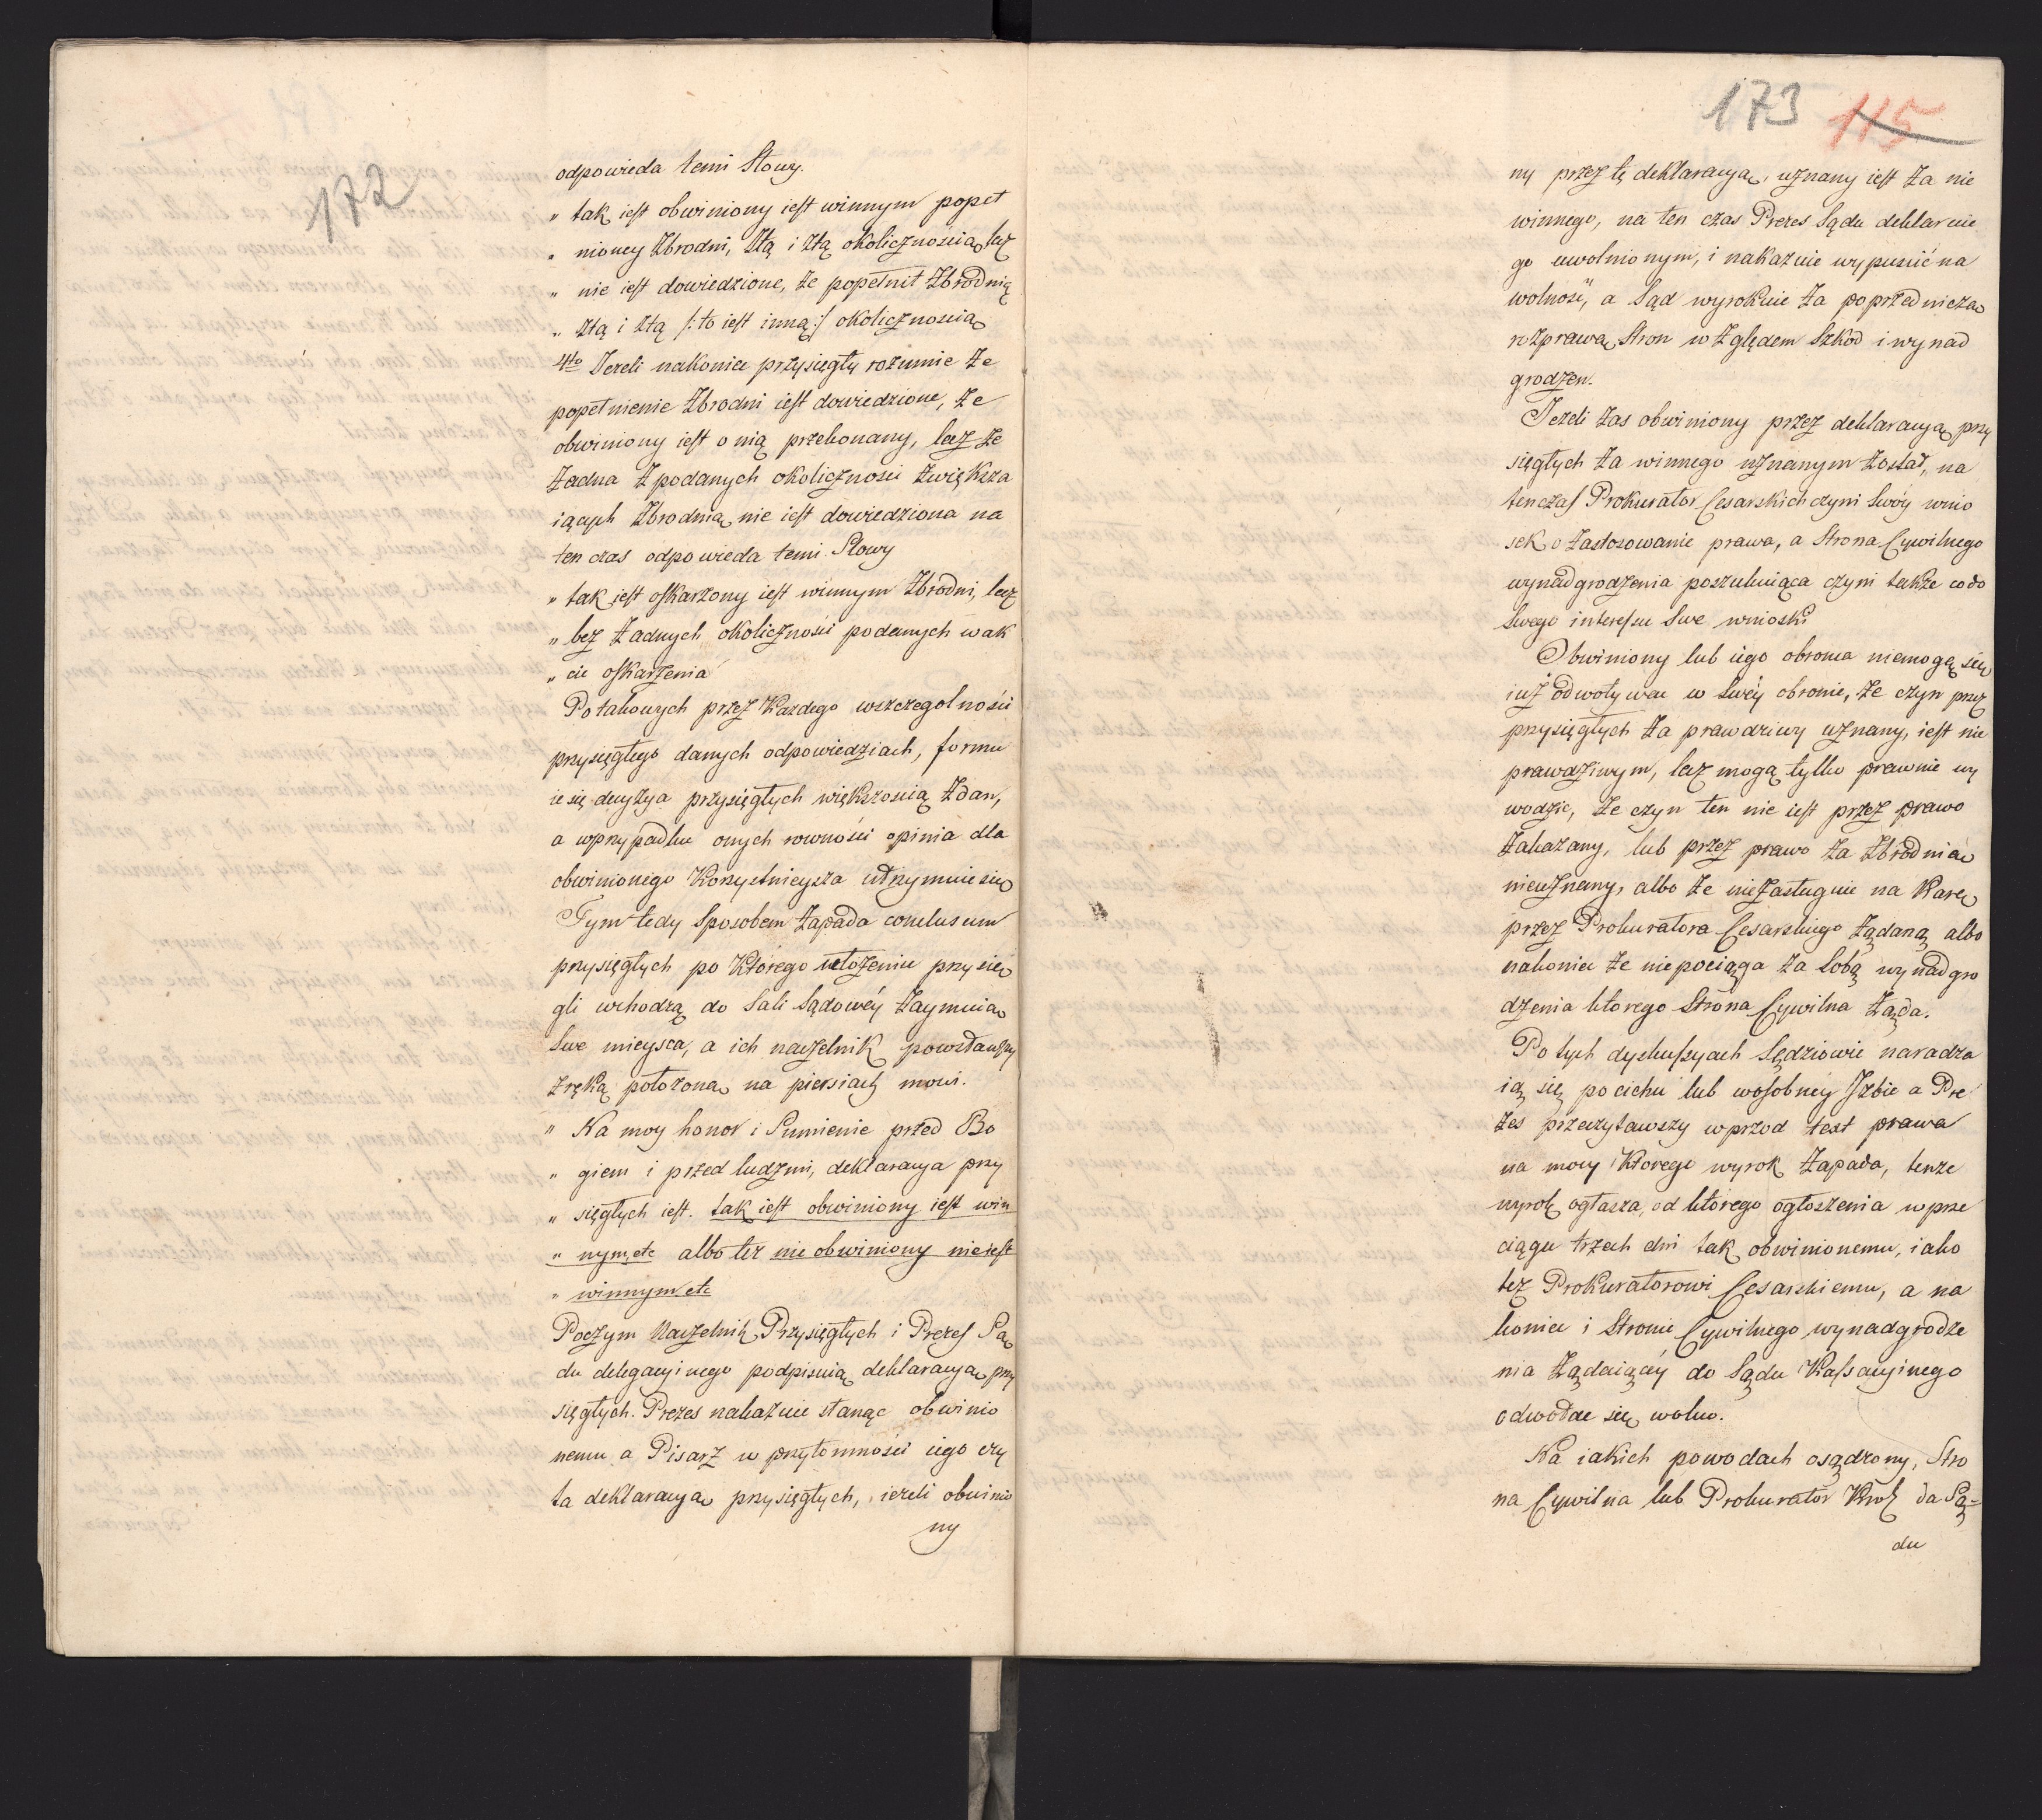 172
odpowieda temi Słowy.
„ tak iest obwiniony iest winnym popeł
„ nioney Zbrodni, Ztą i Ztą okolicznoscią lecz
„ nie iest dowiedzione, że popełnił Zbrodnię
„ Ztą i Ztą /: to iest inną :/ okolicznoscią
4to Jeżeli nakoniec przysięgły rozumie że
popełnienie Zbrodni iest dowiedzione, że
obwiniony iest o nią przekonany, lecz że
żadna z podanych okoliczności zwiększa
iących Zbrodnią nie iest dowiedziona na
ten czas odpowieda temi Słowy
„ tak iest oskarzony iest winnym Zbrodni, lecz
„ bez żadnych okoliczności podanych w ak
„ cie oskarżenia
Po takowych przez Kazdego wszczegolności
przysięgłego danych odpowiedziach, formu
ie się decyzya przysięgłych większoscią Zdań,
a wprzypadku onych rowności opinia dla
obwinionego Korzystnieysza utrzymuie się
Tym tedy Sposobem Zapada conclusum
przysięgłych po Którego ułożeniu przysię
gli wchodzą do Sali Sądowéy Zaymuią
Swe mieysca, a ich naczelnik powstawszy
z ręką położoną na piersiach mowi.
„ Na moy honor i Sumienie przed Bo
„ giem i przed ludzmi, deklaracya przy
„ sięgłych iest. tak iest obwiniony iest win
„ nym etc albo też nie obwiniony nie iest
„ winnym etc
Poczym Naczelnik Przysięgłych i Prezes Są
du delegacyinego podpisuią deklaracyą przy
sięgłych. Prezes nakazuie stanąć obwinio
nemu a Pisarz w przytomności iego czy
ta deklaracyą przysięgłych, ieżeli obwinio
ny
173 115
ny przez tę deklaracyą, uznany iest Za nie
winnego, na ten czas Prezes Sądu deklaruie
go uwolnionym, i nakazuie wypuścić na
wolność, a Sąd wyrokuie Za poprzedniczą
rozprawą Stron względem Szkod i wynad
grodzen.
Jeżeli zas obwiniony przez deklaracyą przy
sięgłych Za winnego uznanym Został, na
tenczas Prokurator Cesarskich czyni Swóy wnio
sek o Zastosowanie prawa, a Strona Cywilnego
wynadgrodzenia poszukuiąca czyni także co do
Swego interessu Swe wnioski
Obwiniony lub iego obrona niemogą się
iuż odwoływać w Swéy obronie, że czyn przez
przysięgłych Za prawdziwy uznany, iest nie
prawdziwym, lecz mogą tylko prawnie wy
wodzić, że czyn ten nie iest przez prawo
Zakazany, lub przez prawo Za Zbrodnią
nieuznany, albo że niezasługuie na Karę
przez Prokuratora Cesarskiego Ządaną albo
nakoniec że niepociąga Za Sobą wynadgro
dzenia którego Strona Cywilna Ząda.
Po tych dyskussyach Sędziowie naradza
ią się po cichu lub wosobnéy Izbie a Pre
zes przeczytawszy wprzod text prawa
na mocy Którego wyrok Zapada, tenże
wyrok ogłasza, od którego ogłoszenia w prze
ciągu trzech dni tak obwinionemu, iako
też Prokuratorowi Cesarskiemu, a na
koniec i Stronie Cywilnego wynadgrodze
nia Ządaiącéy do Sądu Kassacyinego
odwołać się wolno.
Na iakich powodach osądzony, Stro
na Cywilna lub Prokurator Krol da Są=
du